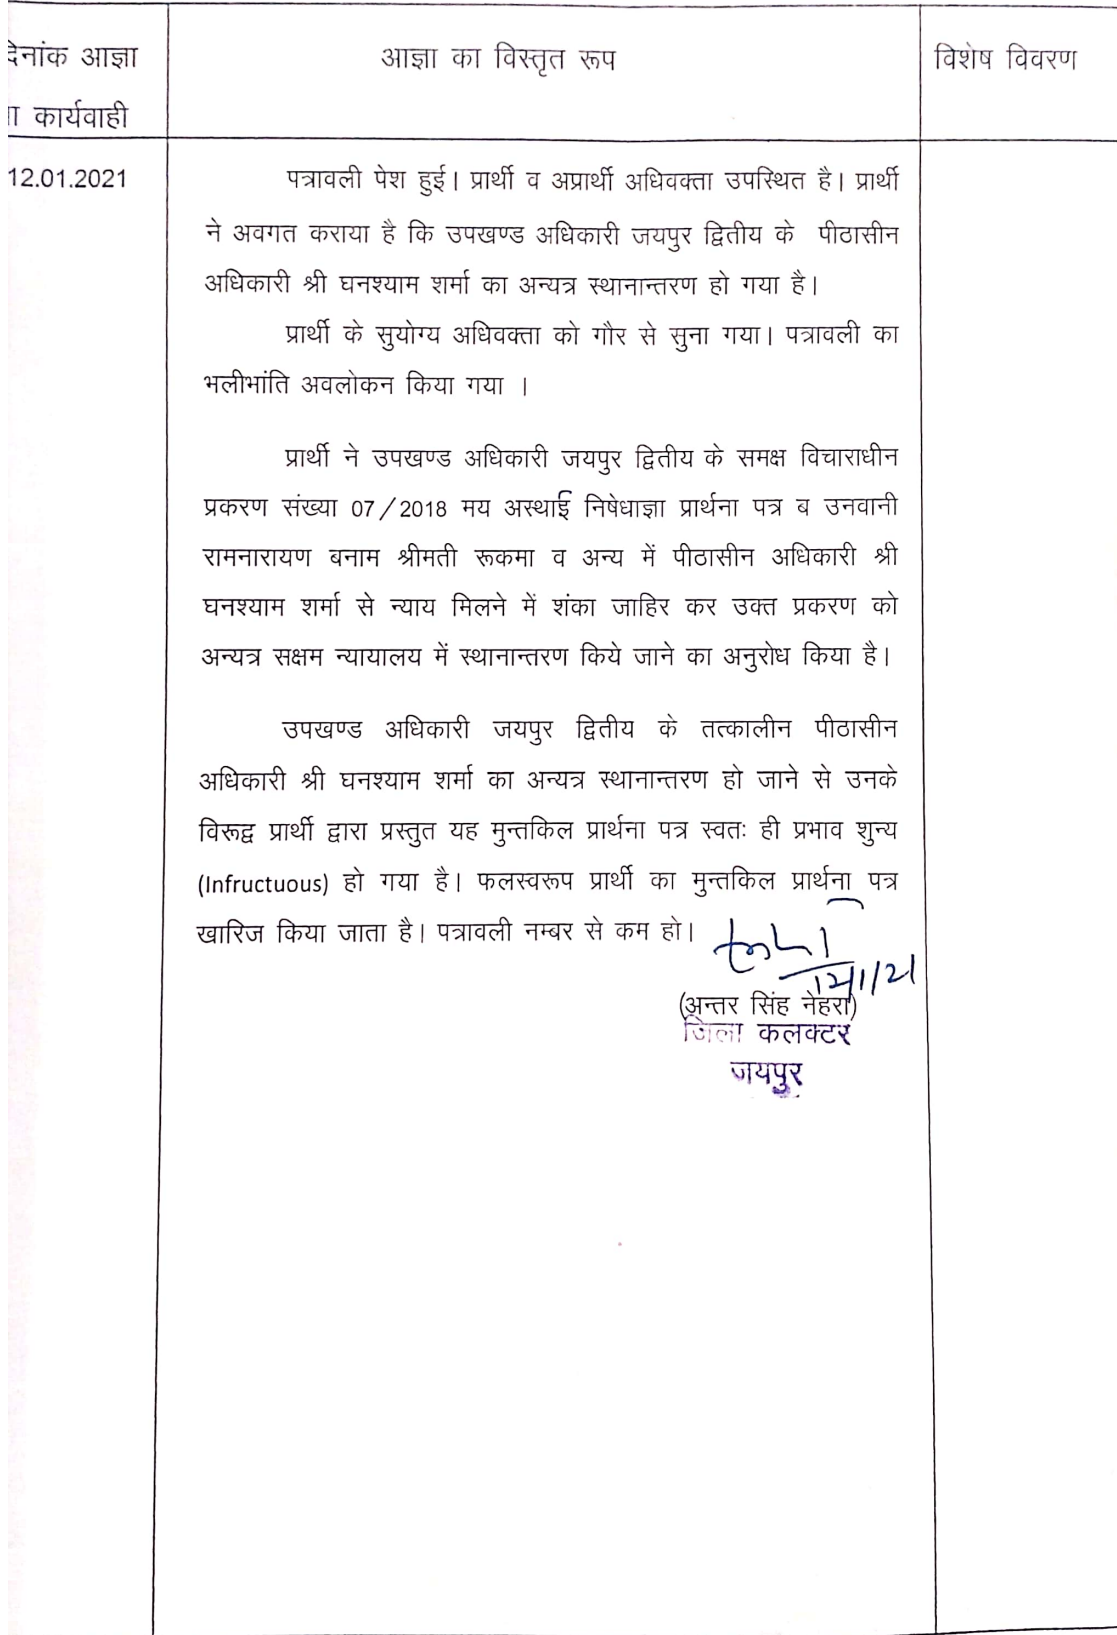 दिनांक आज्ञा
आज्ञा का विस्तृत रूप
विशेष विवरण
कार्यवाही
12.01.2021
पत्रावली पेश हुई। प्रार्थी व अप्रार्थी अधिवक्ता उपस्थित है। प्रार्थी
ने अवगत कराया है कि उपखण्ड अधिकारी जयपुर द्वितीय के पीठासीन
अधिकारी श्री घनश्याम शर्मा का अन्यत्र स्थानान्तरण हो गया है।
प्रार्थी के सुयोग्य अधिवक्ता को गौर से सुना गया। पत्रावली का
भलीभांति अवलोकन किया गया ।
प्रार्थी ने उपखण्ड अधिकारी जयपुर द्वितीय के समक्ष विचाराधीन
प्रकरण संख्या 07/2018 मय अस्थाई निषेधाज्ञा प्रार्थना पत्र ब उनवानी
रामनारायण बनाम श्रीमती रूकमा व अन्य में पीठासीन अधिकारी श्री
घनश्याम शर्मा से न्याय मिलने में शंका जाहिर कर उक्त प्रकरण को
अन्यत्र सक्षम न्यायालय में स्थानान्तरण किये जाने का अनुरोध किया है।
उपखण्ड अधिकारी जयपुर द्वितीय के तत्कालीन पीठासीन
अधिकारी श्री घनश्याम शर्मा का अन्यत्र स्थानान्तरण हो जाने से उनके
विरूद्व प्रार्थी द्वारा प्रस्तुत यह मुन्तकिल प्रार्थना पत्र स्वतः ही प्रभाव शुन्य
(Infructuous) हो गया है। फलस्वरूप प्रार्थी का मुन्तकिल प्रार्थना पत्र
खारिज किया जाता है। पत्रावली नम्बर से कम हो।
12/1/21
(अन्तर सिंह नेहरा)
जिला कलक्टर
जयपुर